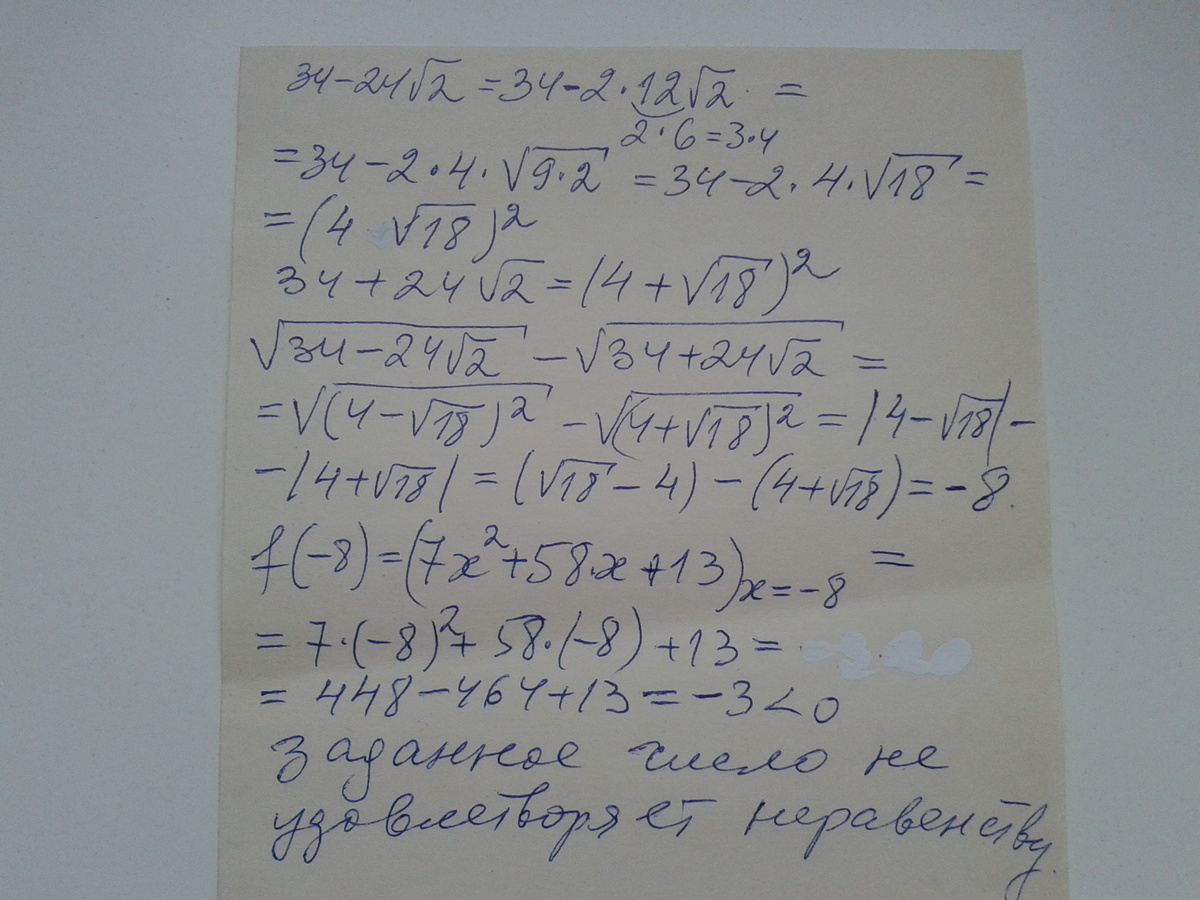 34-24√2 = 34-2·12√2 =
2·6=3·4
=34-2·4·√9·2 =34-2·4·√18 =
=(4 √18)²
34+24√2=(4+√18)²
√34-24√2 -√34+24√2 =
=√(4-√18)² -√(4+√18)² =|4-√18|-
-|4+√18| = (√18-4)-(4+√18)=-8.
f(-8)=(7x²+58·x+13)x=-8 =
= 7·(-8)²+ 58·(-8) +13 =
= 448-464+13=-3<0
заданное число не
удовлетворяет неравенству.